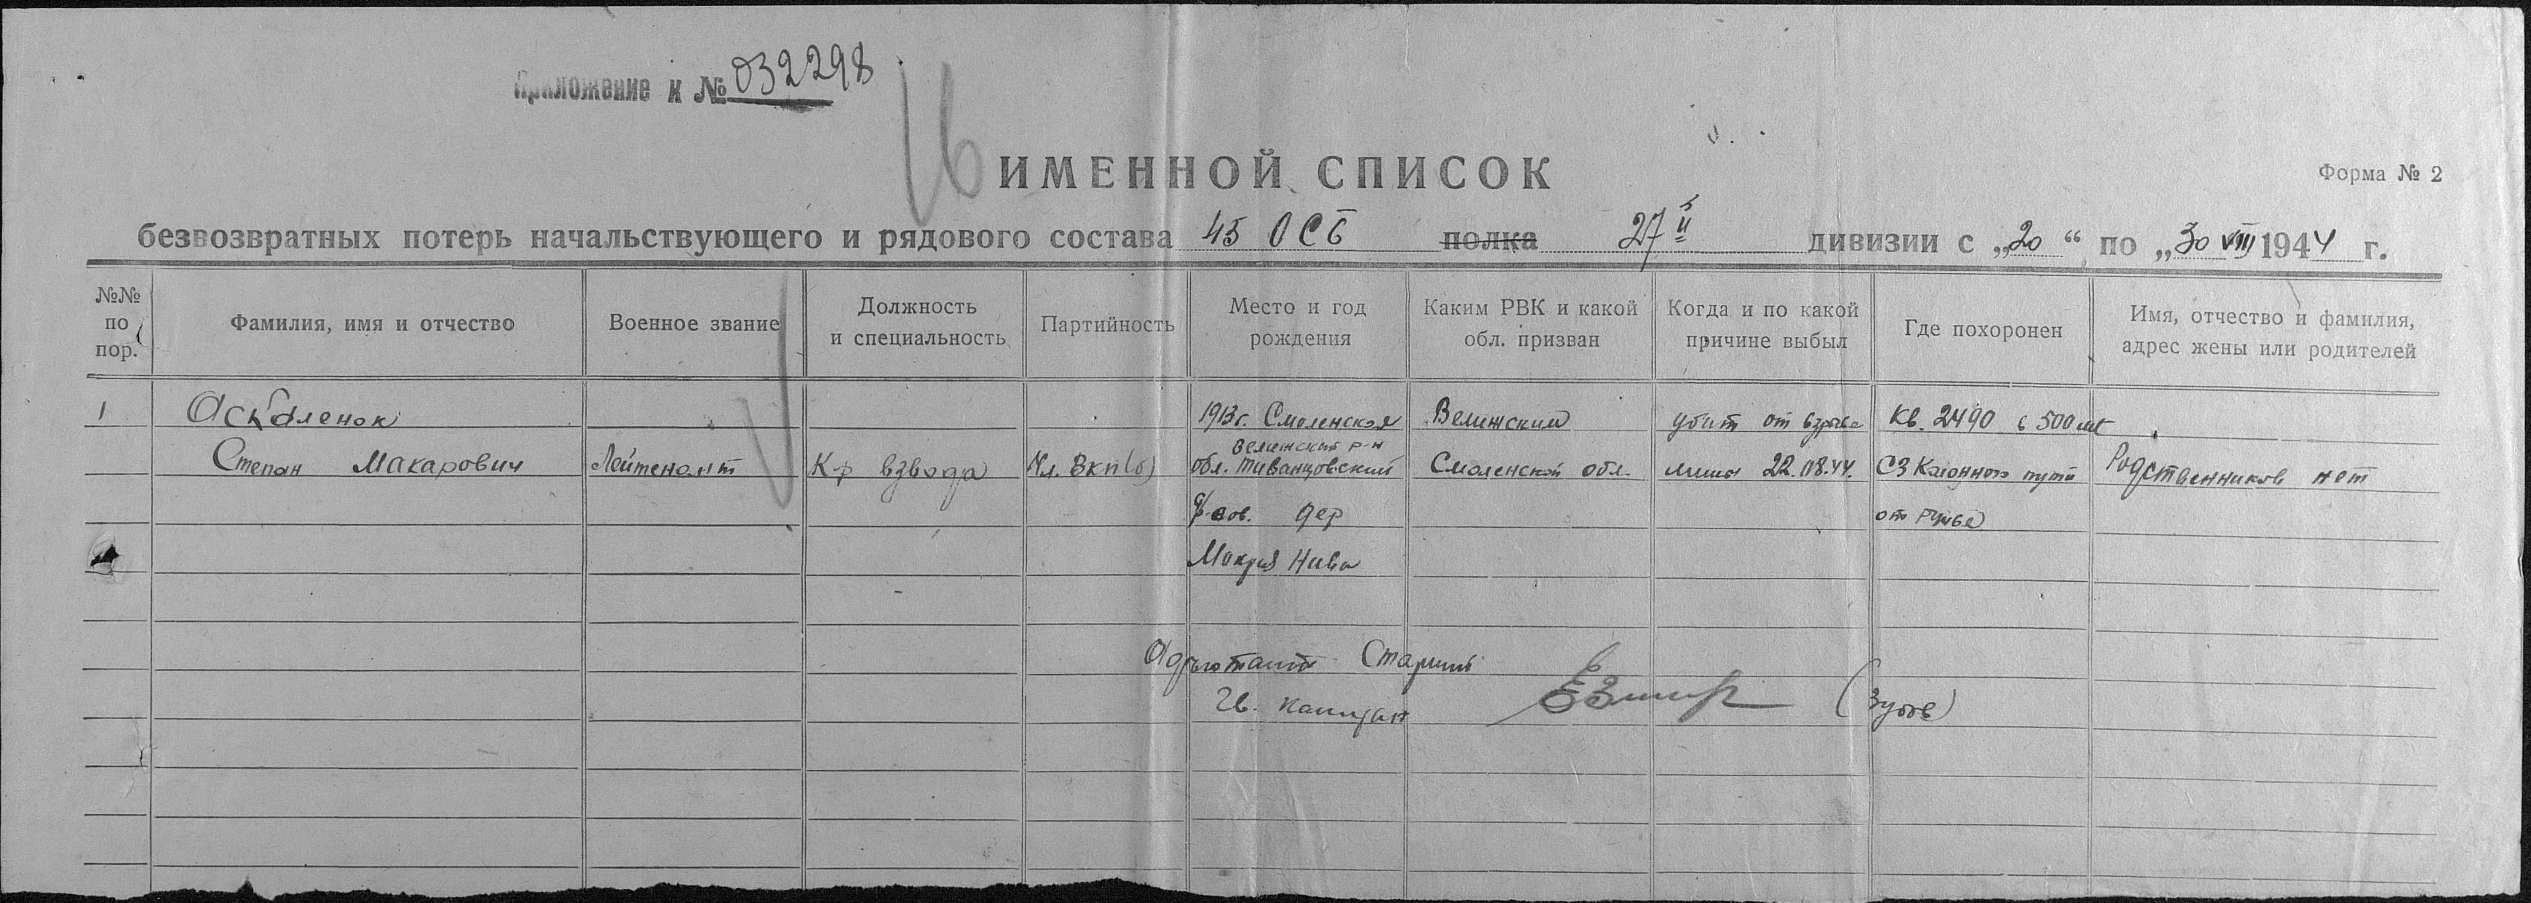 Приложение к № 032298
16
ИМЕННОЙ СПИСОК
Форма № 2
безвозвратных потерь начальствующего и рядового состава 45 ОСБ полка 27й дивизии с „20“ по „30 VIII 1944 г.
№№ по пор.
Фамилия, имя и отчество
Военное звание
Должность и специальность
Партийность
Место и год рождения
Каким РВК и какой обл. призван
Когда и по какой причине выбыл
Где похоронен
Имя, отчество и фамилия, адрес жены или родителей
1 Аскаленок 1913г. Смоленская Велижский убит от взрыва Кв. 2490 в 500 мт
Велижский р-н
Степан Макарович Лейтенант К-р взвода Чл. ВКП(б) обл. Тиванцовский Смоленской обл. мины 22.08.44. СЗ пути Родственников нет
сов. дер от
Макрая Нива
Адъютант Старший
Гв. капитан (Зубов)